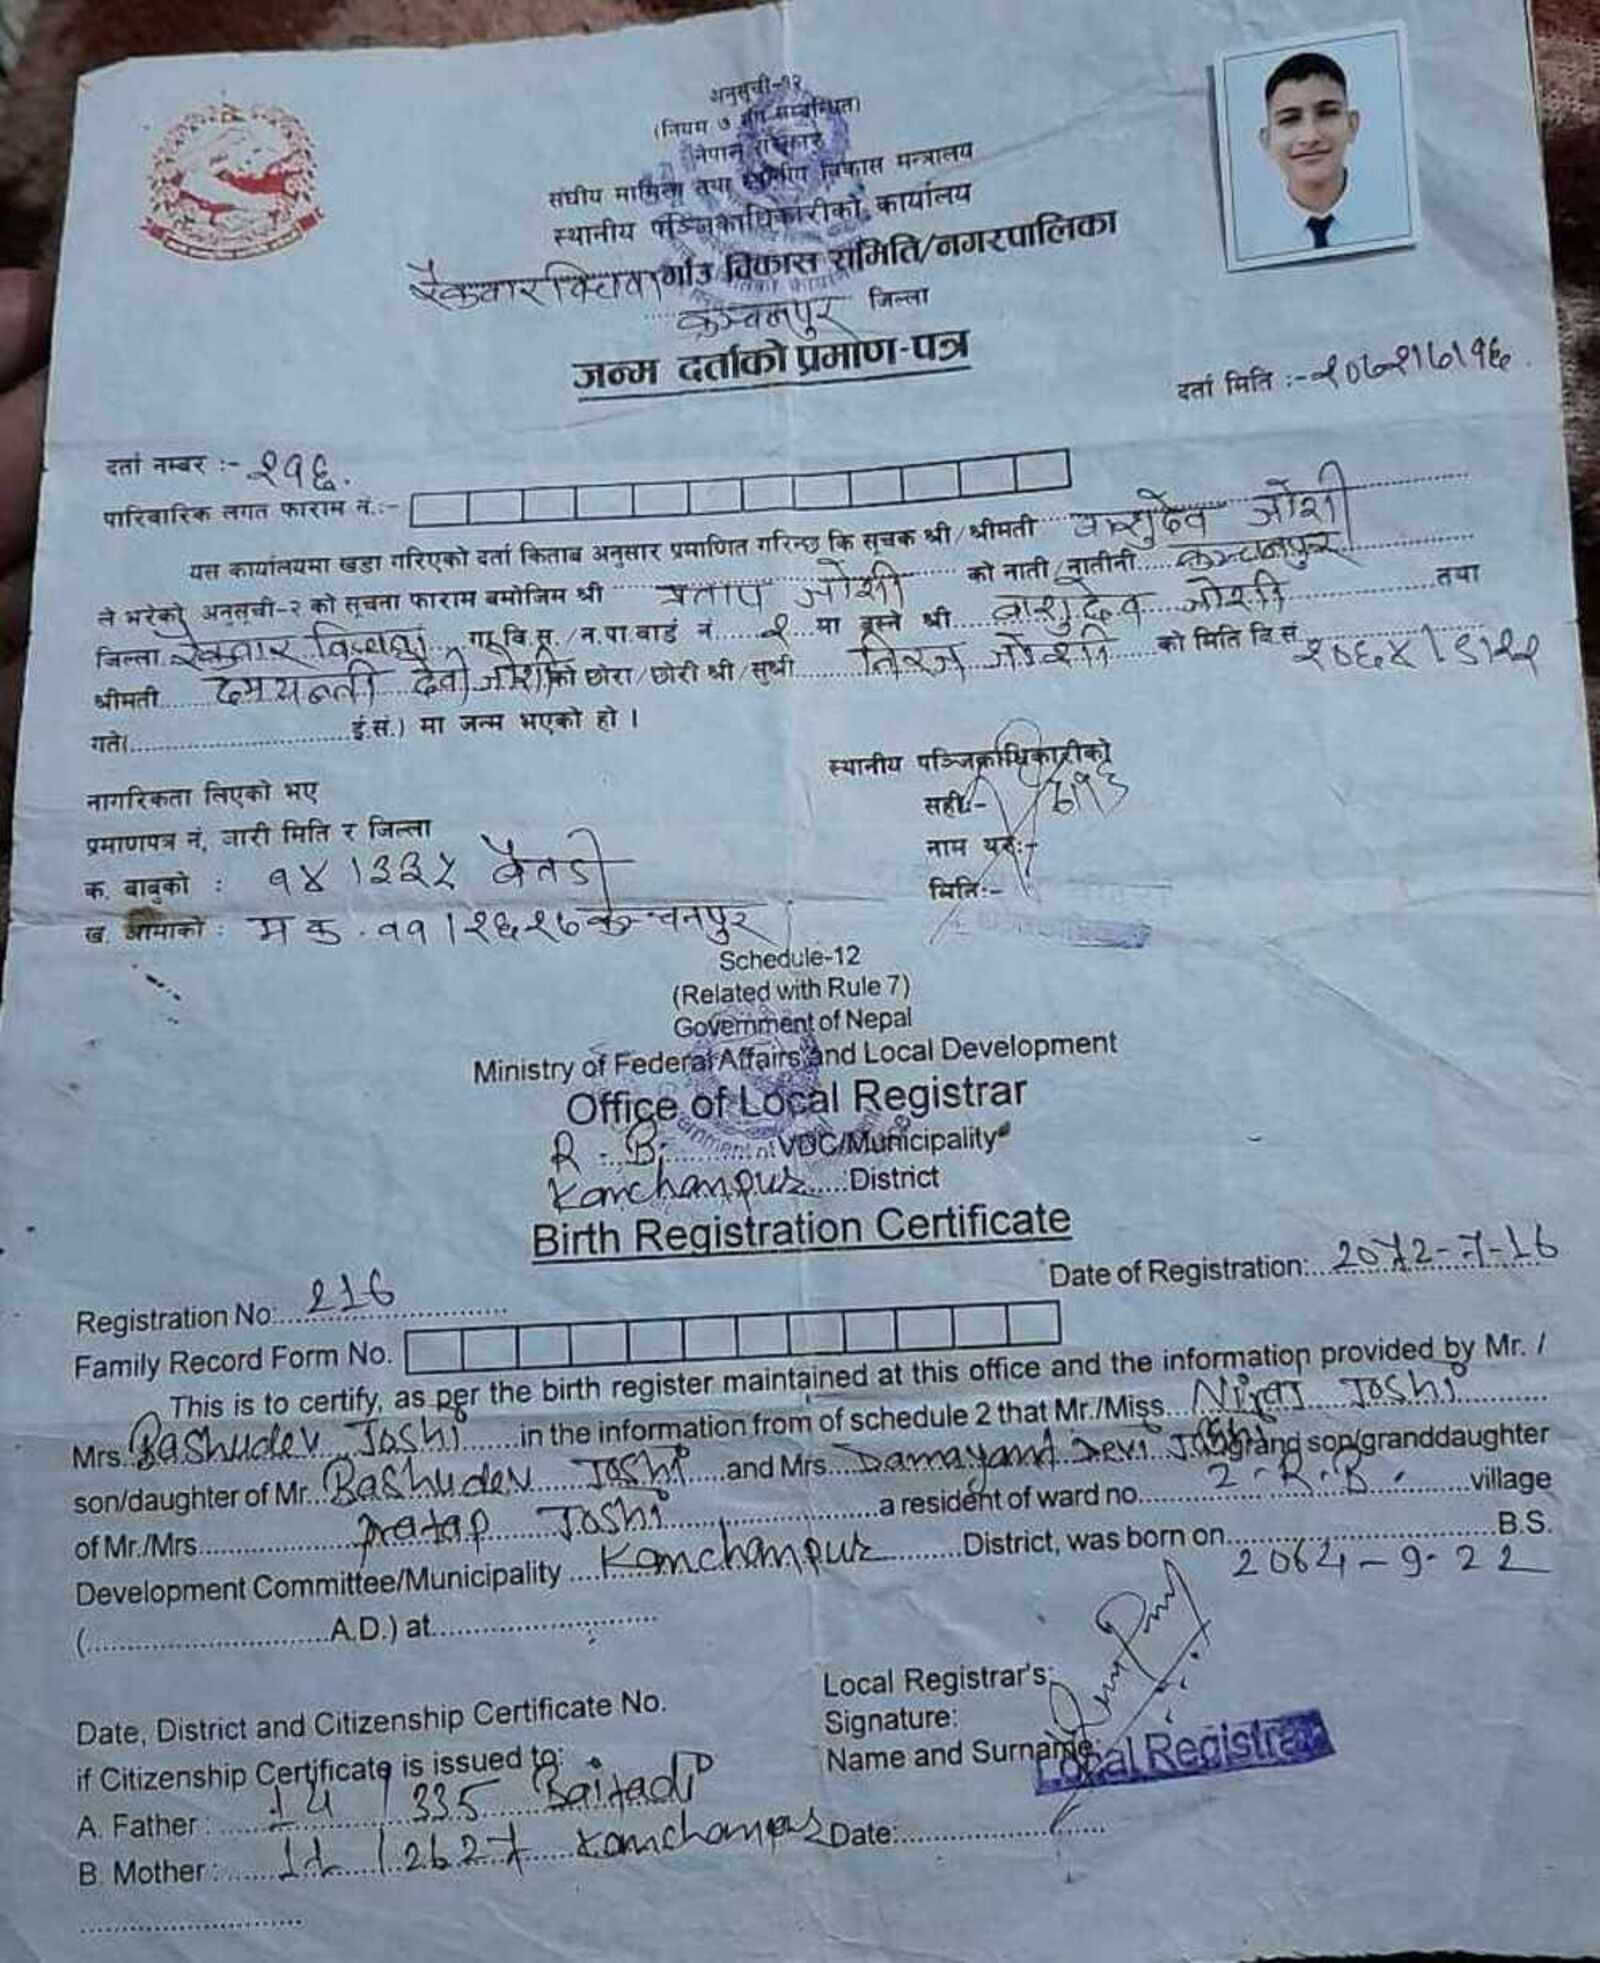 अनुसूची-१२
(नियम ७ सँग सम्बन्धित)
नेपाल सरकार
संघीय मामिला तथा स्थानीय विकास मन्त्रालय
स्थानीय पञ्जिकाधिकारीको कार्यालय
रैकवार विचवा गाउँ विकास समिति/नगरपालिका
कञ्चनपुर जिल्ला
जन्म दर्ताको प्रमाण-पत्र
दर्ता मिति :- २०७२।७।१६.
दर्ता नम्बर :- २१६.
पारिवारिक लगत फाराम नं.:-
यस कार्यालयमा खडा गरिएको दर्ता किताब अनुसार प्रमाणित गरिन्छ कि सूचक श्री/श्रीमती वाशुदेव जोशी
ले भरेको अनुसूची-२ को सूचना फाराम बमोजिम श्री प्रताप जोशी को नाती/नातीनी कञ्चनपुर
जिल्ला रैकवार विचवा गा.वि.स./न.पा.वार्ड नं. २ मा बस्ने श्री वाशुदेव जोशी तथा
श्रीमती दमयन्ती देवी जोशी को छोरा/छोरी श्री/सुश्री निरज जोशी को मिति वि.सं. २०६४।९।२२
गते(..............................ई.सं.) मा जन्म भएको हो ।
नागरिकता लिएको भए
प्रमाणपत्र नं, जारी मिति र जिल्ला
क. बाबुको : १४।३३५ बैतडी
ख. आमाको : म क. ११।२६२७ कञ्चनपुर
स्थानीय पञ्जिकाधिकारीको
सही:-
नाम थर:-
मिति:-
Schedule-12
(Related with Rule 7)
Government of Nepal
Ministry of Federal Affairs and Local Development
Office of Local Registrar
R.B. VDC/Municipality
Kanchanpur District
Birth Registration Certificate
Date of Registration: 2072-7-16
Registration No: 216
Family Record Form No.
This is to certify, as per the birth register maintained at this office and the information provided by Mr. /
Mrs. Bashudev Joshi in the information from of schedule 2 that Mr./Miss. Niraj Joshi
son/daughter of Mr. Bashudev Joshi and Mrs. Damayanti Devi Joshi grand son/granddaughter
of Mr./Mrs. Pratap Joshi a resident of ward no. 2-R.B. village
Development Committee/Municipality Kanchanpur District, was born on 2064-9-22 B.S.
(..............................A.D.) at..............................
Date, District and Citizenship Certificate No.
if Citizenship Certificate is issued to:
A. Father : 14/335 Baitadi
B. Mother : 11/2627 Kanchanpur
Local Registrar's:
Signature:
Name and Surname:
Local Registrar
Date:..............................